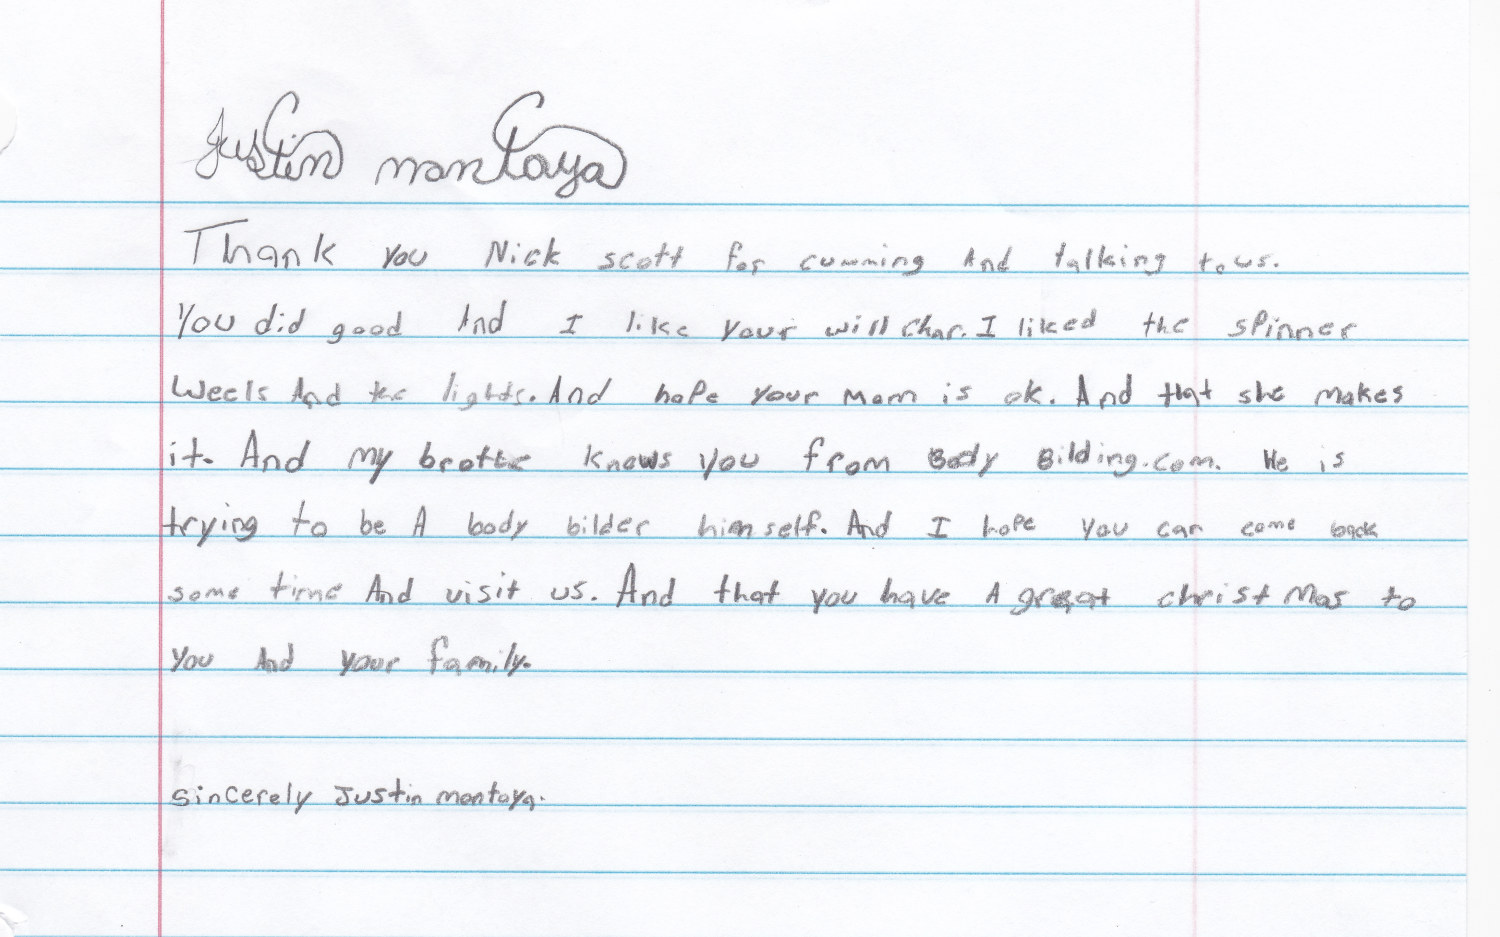 Justin montaya
Thank you Nick scott for cumming And talking to us.
You did good And I like your will char. I liked the spinner
weels And the lights. And hope your mom is ok. And that she makes
it. And my brotte knows you from Body Bilding.com. He is
trying to be A body bilder him self. And I hope you can come back
some time And visit us. And that you have A great christ mas to
you And your family.
sincerely Justin montaya.